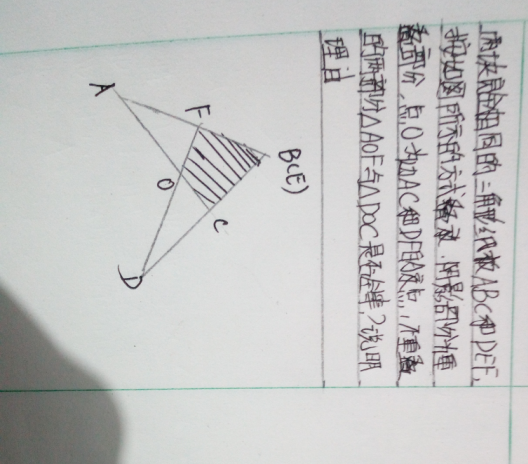 两块完全相同的三角形纸板ABC和DEF,
按如图所示的方式叠放,阴影部分为重
叠部分,点O为边AC和DF的交点,不重叠
的两部分△AOF与△DOC是否全等?说明
理由
A
F
B(E)
O
C
D